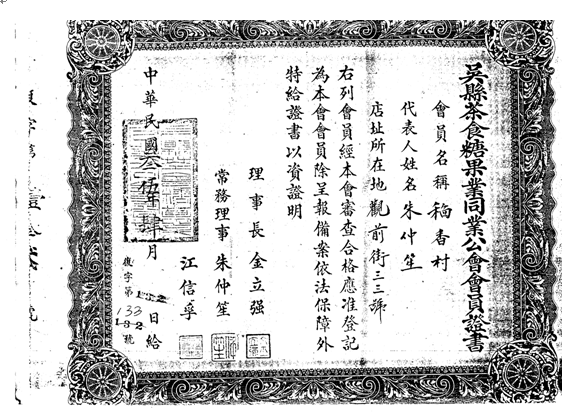 吳縣茶食糖果業同業公會會員證書
會員名稱 稻香村
代表人姓名 朱仲笙
店址所在地 觀前街三三號
右列會員經本會審查合格應准登記
為本會會員除呈報備案依法保障外
特給證書以資證明
理事長 金立强
常務理事 朱仲笙
江信孚
中華民國叁伍年肆月 日給
復字第132號
133